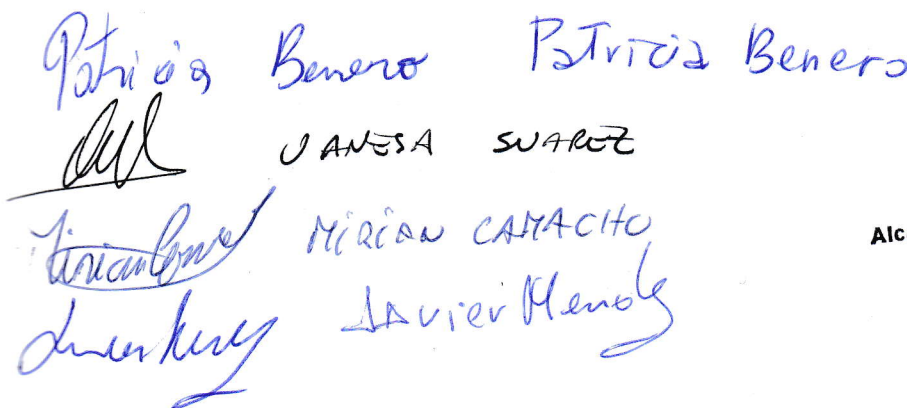 Patricia Benero Patricia Benero
VANESA SUAREZ
MIRIAN CAMACHO
Alc
Javier Mendez